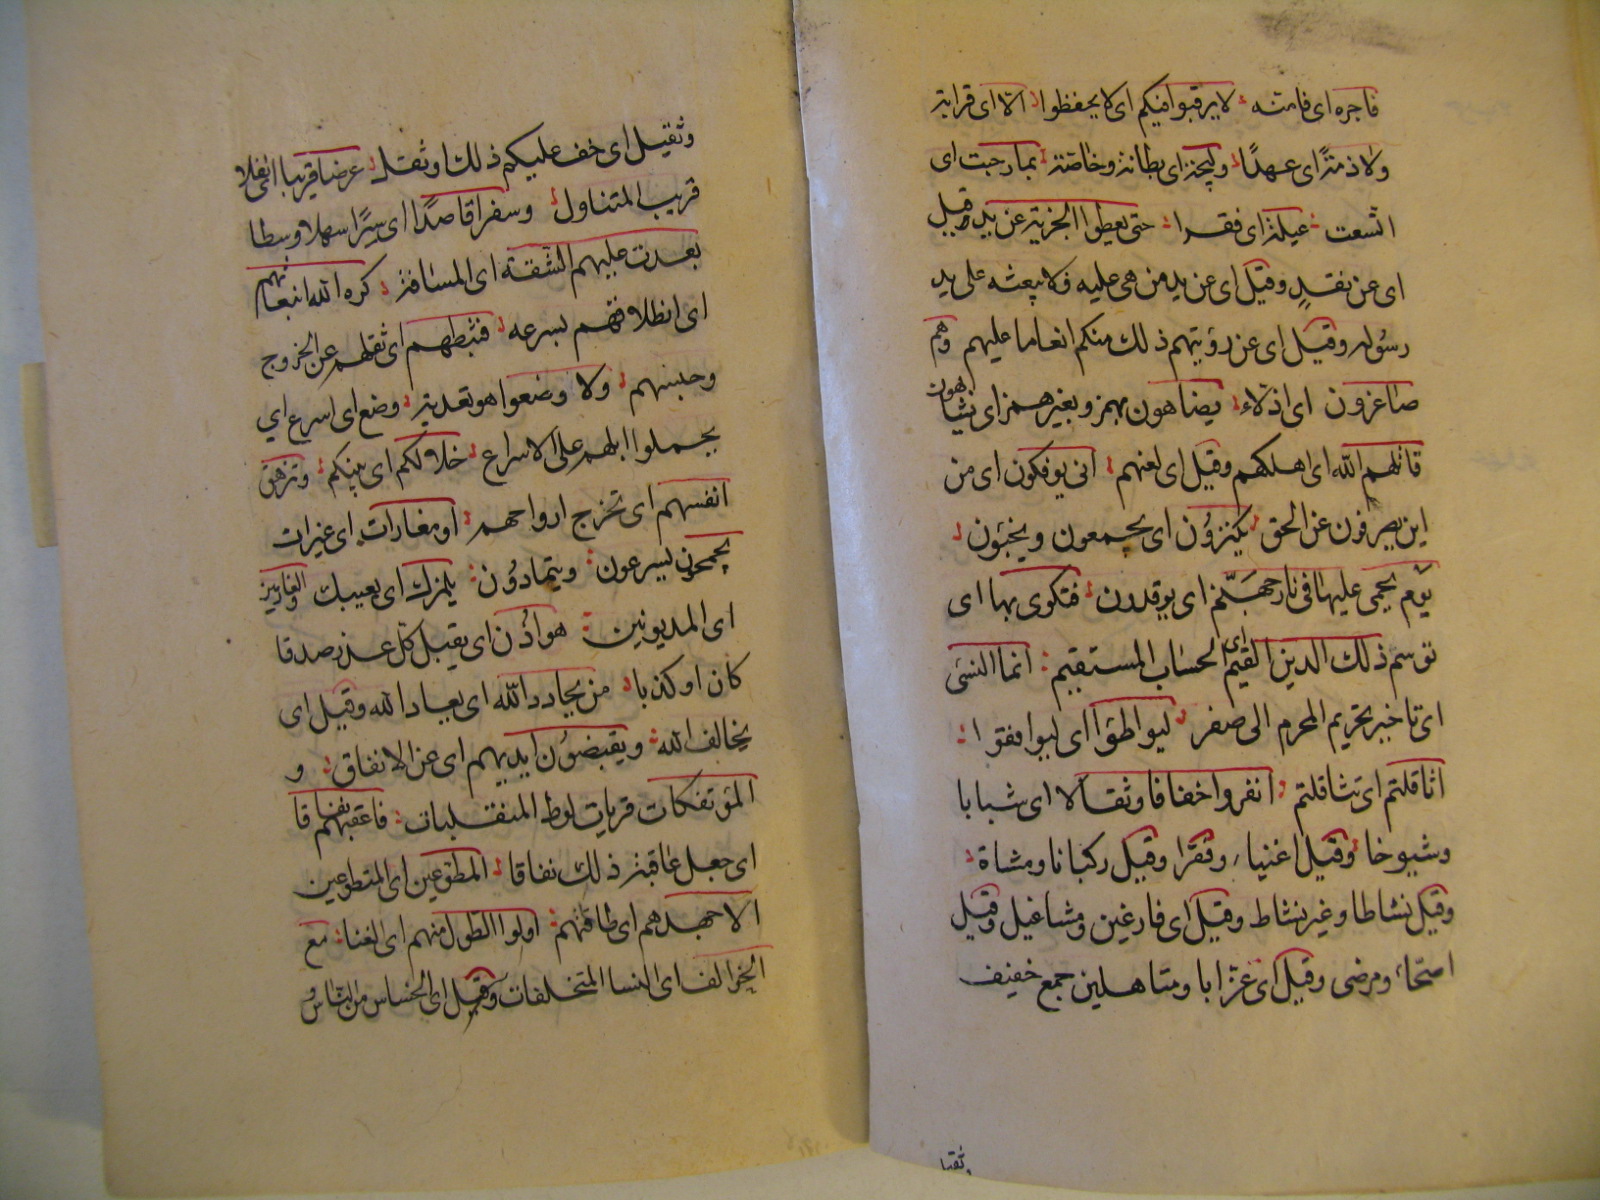 فاجره اى فامنه لا يرقبوا فيكم اى لا يحفظوا الّا اى قرابة
ولا ذمةً اى عهدًا وليجة اى بطانة وخاصّة بما رحبت اى
اتّسعت عيلة اى فقرا حتى يعطوا الجزية عن يد قيل
اى عن نقدٍ وقيل اى عن يد من هى عليه ولا يبعثه على يد
رسوله وقيل اى عن رؤيتهم ذلك منكم انعاما عليهم وهم
صاغرون اى اذلّاء يضاهون بهمز وبغير همز اى يشابهون
قاتلهم الله اى اهلكهم وقيل اى لعنهم انى يوفكون اى من
اين يصرفون عن الحق يكنزون اى يجمعون ويخبئون
يوم يحمى عليها فى نار جهنّم اى يوقدون فتكوى بها اى
توسم ذلك الدين القيم اى الحساب المستقيم انما النسئ
اى تاخير تحريم المحرم الى صفر ليواطؤا اى ليوافقوا
اثاقلتم اى تثاقلتم انفروا خفافا وثقالا اى شبابا
وشيوخا وقيل اغنياء وفقرا وقيل ركبانا ومشاة
وقيل نشاطا وغير نشاط وقيل اى فارغين ومشاغيل وقيل
اصحّاء ومرضى وقيل اى عزّابا ومتاهلين جمع خفيف
وثقيل
وثقيل اى خف عليكم ذلك او ثقل عرضا قريبا اى نفلا
قريب المتناول وسفرا قاصدًا اى سيرًا سهلا وسطا
بعدت عليهم الشقة اى المسافة كره الله انبعاثهم
اى انطلاقهم بسرعه فثبطهم اى ثقلهم عن الخروج
وحبسهم ولا وضعوا هو تعدية وضع اى اسرع اي
يحملوا ابلهم على الاسراع خلالكم اى بينكم وتزهق
انفسهم اى تخرج ارواحهم او مغارات اى غيرات
يجمحون يسرعون ويتمادون يلمزك اى يعيبك والغارمين
اى المديونين هو اذن اى يقبل كل عذر صدقا
كان او كذبا من يحادد الله اى يعاد الله وقيل اى
يخالف الله ويقبضون ايديهم اى عن الانفاق و
المؤتفكات قريات لوط المنقلبات فاعقبهم نفاقا
اى جعل عاقبة ذلك نفاقا المطوعين اى المتطوعين
الا جهدهم اى طاقتهم اولوا الطول منهم اى الغنا مع
الخوالف اى النسا المتخلفات وقيل اى الخساس من الناس و